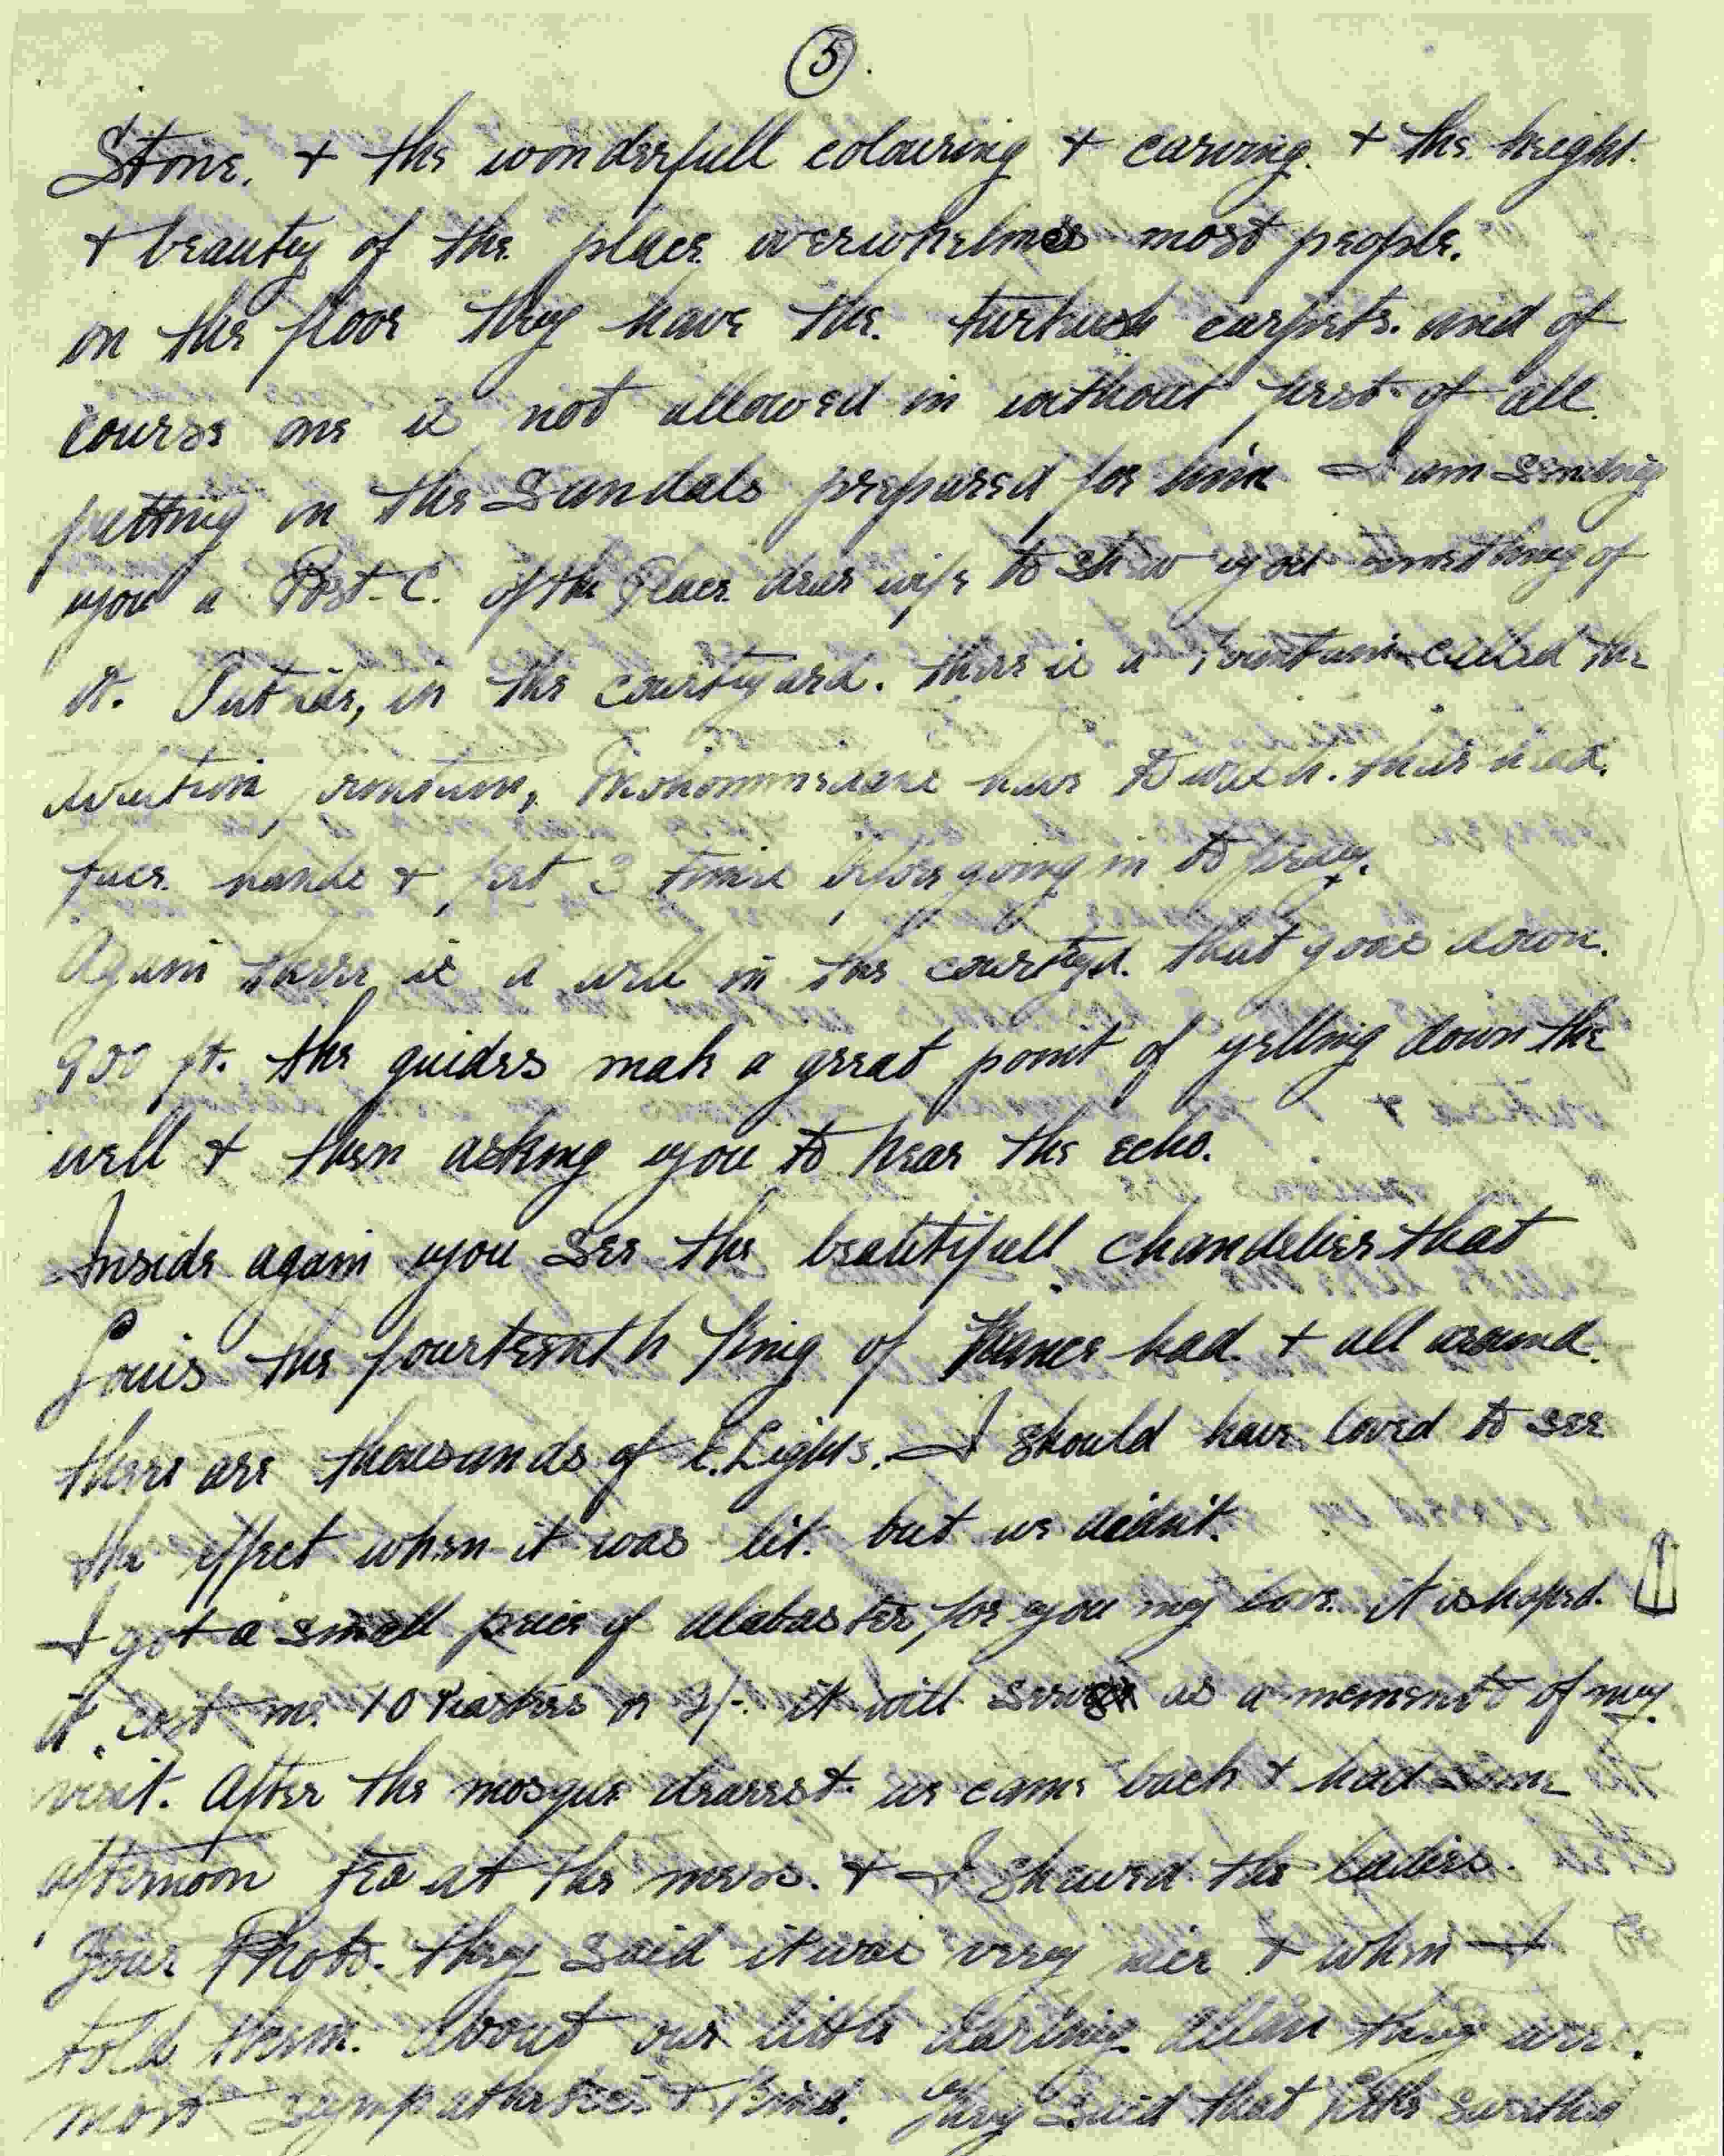 5.
Stone. + the wonderfull colouring + carving. + the height.
+ beautey of the place overwhelmes most people.
on the floor they have the turkush carpets. and of
course one is not allowed in without first of all.
putting on the Sandals prepared for him I am sending
you a Post-C. of the Place dear wife to shew you something of
it. Outside, in the courtyard. there is a Fountain called the
Ablution fountain, Mohommedans have to wash. their head.
face. hands + feet 3 times before going in to pray.
Again there is a well in the courtyd. that goes down.
900 ft. the guides make a great point of yelling down the
well + then asking you to hear the echo.
Inside again you see the beautifull chandelier that
Louis the fourteenth King of France had. + all around.
there are thousands of E. Lights. I should have loved to see
the effect when it was lit. but we didnt.
I got a small peice of Alabaster, for you my love. it is shaped.
it cost me. 10 Piastres or 2/-. it will serve as a memento of my.
visit. After the mosque dearest. we came back + had some
afternoon tea at the mess. + I shewed the ladies.
your Photo. they said it was very nice + when I
told them. about our little darling Allan they were.
most sympathetic + kind. They said that little